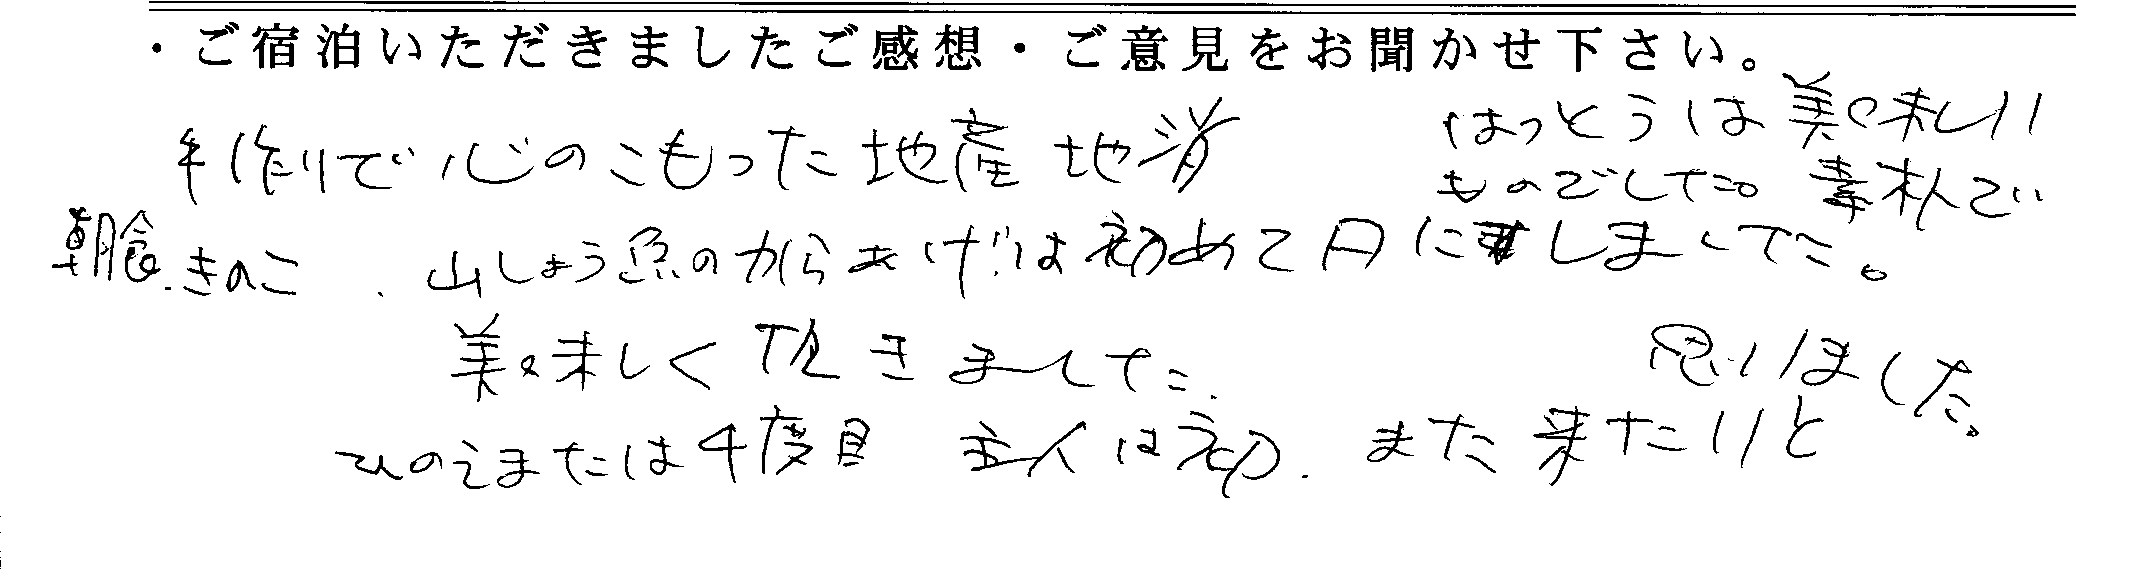 ・ご宿泊いただきましたご感想・ご意見をお聞かせ下さい。
手作りで心のこもった地産地消
はっとうは美味しい
ものでした。素朴で
朝食.きのこ、山しょう魚のからあげは初めて口にしました。
美味しく頂きました.
ひのえまたは4度目 主人は初. また来たいと
思いました。